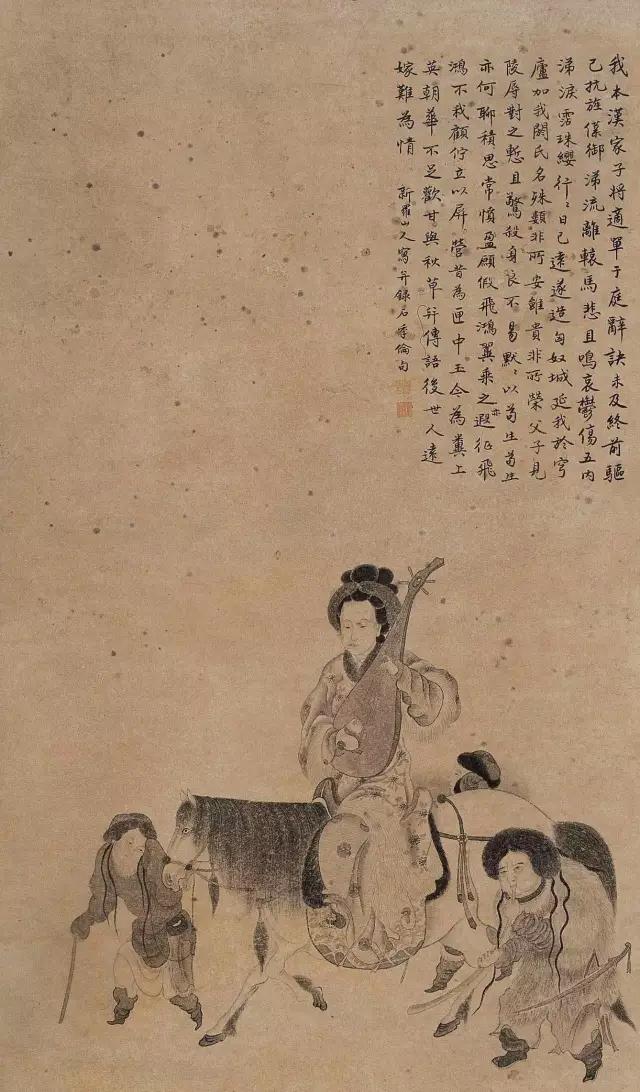 我本漢家子將適單于庭辭訣未及終前驅
已抗旌僕御涕流離轅馬悲且鳴哀鬱傷五内
涕淚霑珠纓行〻日已遠遂造匈奴城延我於穹
廬加我閼氏名殊類非所安雖貴非所榮父子見
陵辱對之慙且驚殺身良不易默〻以苟生苟生
亦何聊積思常憤盈願假飛鴻翼乘之遐征飛
鴻不我顧佇立以屏營昔為匣中玉今為糞上
英朝華不足歡甘與秋草并傳語後世人遠
嫁難為情 新羅山人寫并錄石季倫句